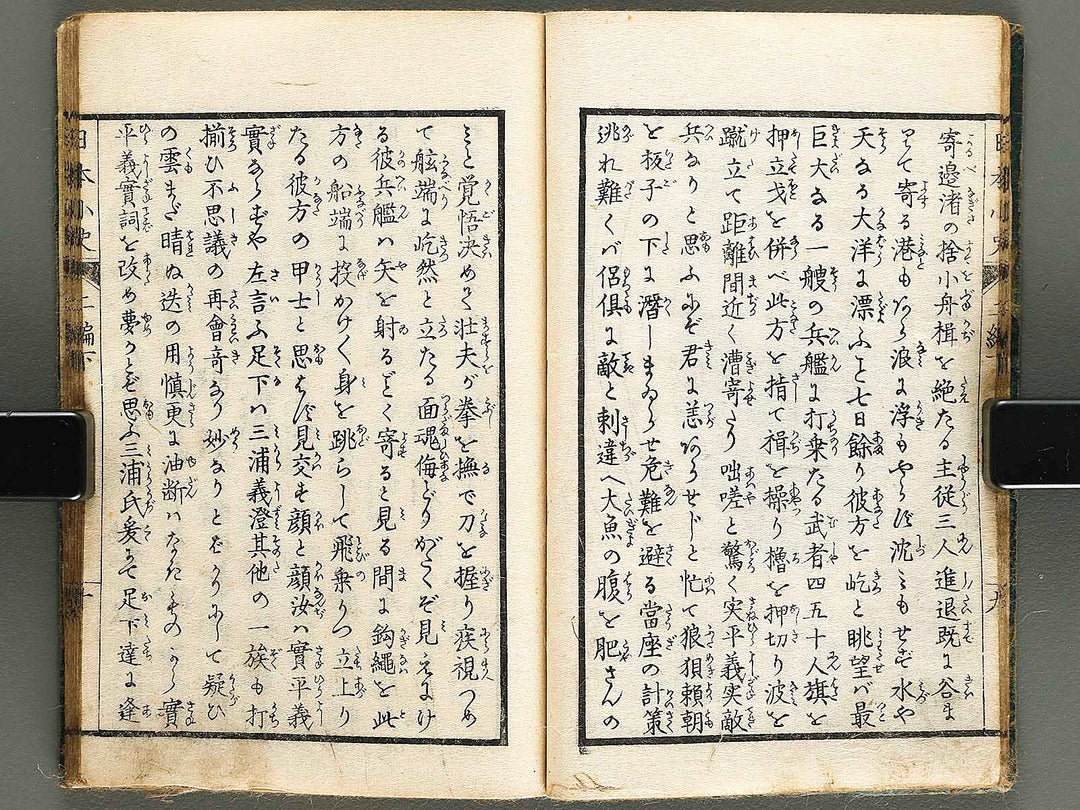 寄邊渚の捨小舟楫を絶たる主従三人進退既に谷ま
りて寄る港もあら浪に浮もやらず沈みもせず水や
天なる大洋に漂ふこと七日餘り彼方を屹と眺望バ最
巨大なる一艘の兵艦に打乗たる武者四五十人旗を
押立戈を併べ此方を指て楫を操り櫓を押切り波を
蹴立て距離間近く漕寄たり咄嗟と驚く実平義実敵
兵なりと思ふにぞ君に恙あらせじと忙て狼狽頼朝
を板子の下に潛しまゐらせ危難を避る當座の計策
逃れ難くバ侶俱に敵と刺違へ大魚の腹を肥さんの
ミと覚悟決めて壮夫が拳を撫で刀を握り疾視つめ
て舷端に屹然と立たる面魂侮どりがたくぞ見えにけ
る彼兵艦ハ矢を射るごとく寄ると見る間に鈎繩を此
方の船端に投かけて身を跳らして飛乗りつ立上り
たる彼方の甲士と思はず見交す顔と顔汝ハ實平義
實ならずや左言ふ足下ハ三浦義澄其他の一族も打
揃ひ不思議の再會奇なり妙なりとばかりにして疑ひ
の雲まだ晴ぬ迭の用慎更に油断ハなかりしが實
平義實詞を改め夢かとぞ思ふ三浦氏爰にて足下達に逢
日本小史 二編下
十
九